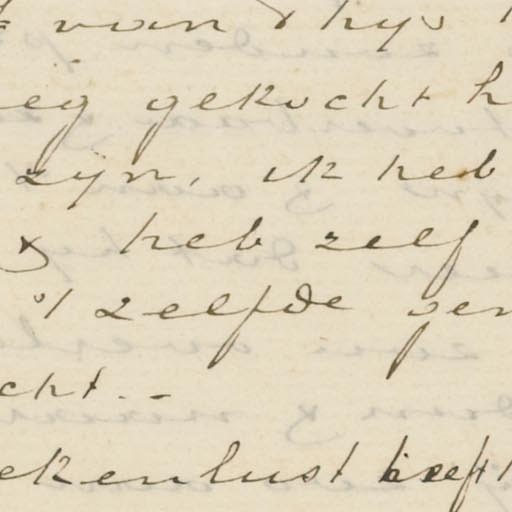 van Thijs
gekocht h
zijn, ik heb
& heb zelf
't zelfde ver
cht. -
ekenlust heeft